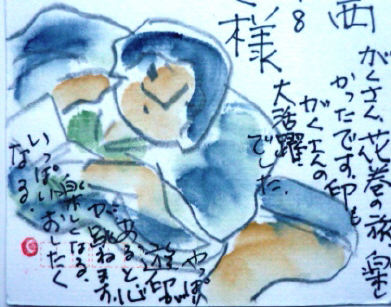 西
8
様
がくさん花巻の旅楽し
かったです。印も
がくさんの
大活躍
でした。
やっぱ
旅印が
あると心
が跳ねます
楽しくなる。
いっぱいおしたく
なる。